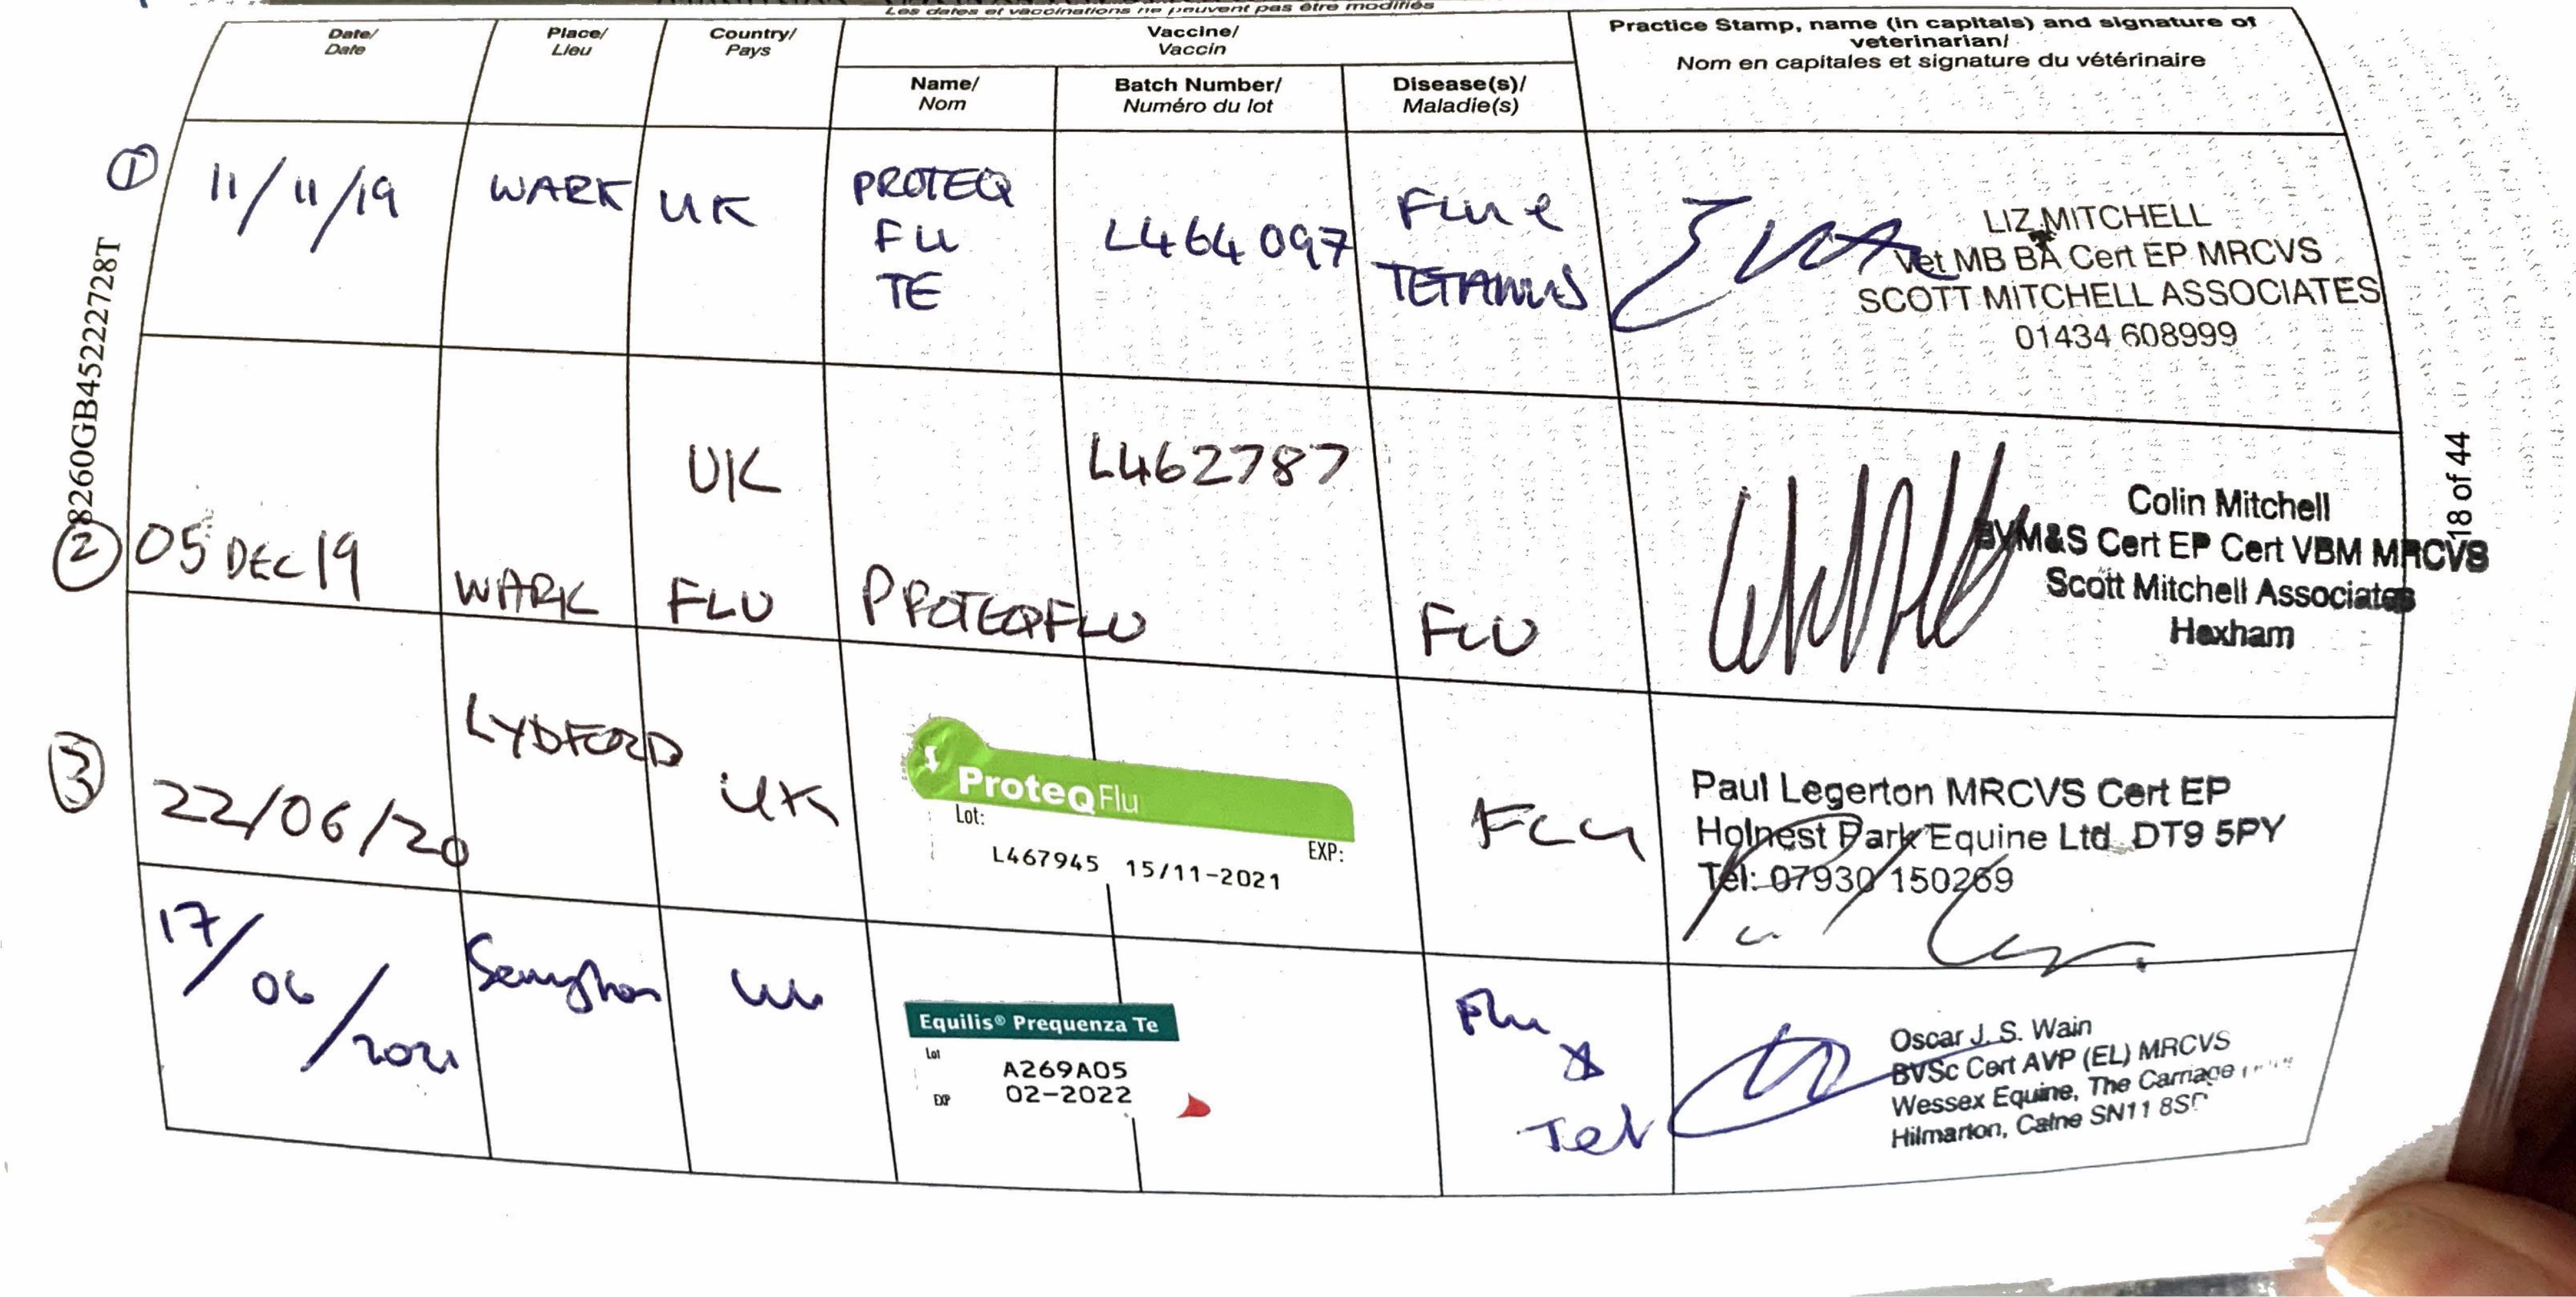 Les dates et vaccinations ne peuvent pas être modifiés
Date/ Date
Place/ Lieu
Country/ Pays
Vaccine/ Vaccin
Practice Stamp, name (in capitals) and signature of
veterinarian/
Nom en capitales et signature du vétérinaire
Name/ Nom
Batch Number/ Numéro du lot
Disease(s)/ Maladie(s)
1
11/11/19
WARK
UK
PROTEQ
FLU
TE
L464097
FLU &
TETANUS
LIZ MITCHELL
Vet MB BA Cert EP MRCVS
SCOTT MITCHELL ASSOCIATES
01434 608999
8260GB45222728T
2
05 DEC 19
WARK
UK
FLU
PROTEQFLU
L462787
FLU
Colin Mitchell
BVM&S Cert EP Cert VBM MRCVS
Scott Mitchell Associates
Hexham
18 of 44
3
22/06/20
LYDFORD
UK
ProteqFlu
Lot:
EXP:
L467945 15/11-2021
FLU
Paul Legerton MRCVS Cert EP
Holnest Park Equine Ltd DT9 5PY
Tel: 07930 150269
17/06/2021
UK
Equilis® Prequenza Te
Lot
A269A05
EXP
02-2022
Flu
&
Tet
Oscar J. S. Wain
BVSc Cert AVP (EL) MRCVS
Wessex Equine, The Carriage
Hilmarton, Calne SN11 8S